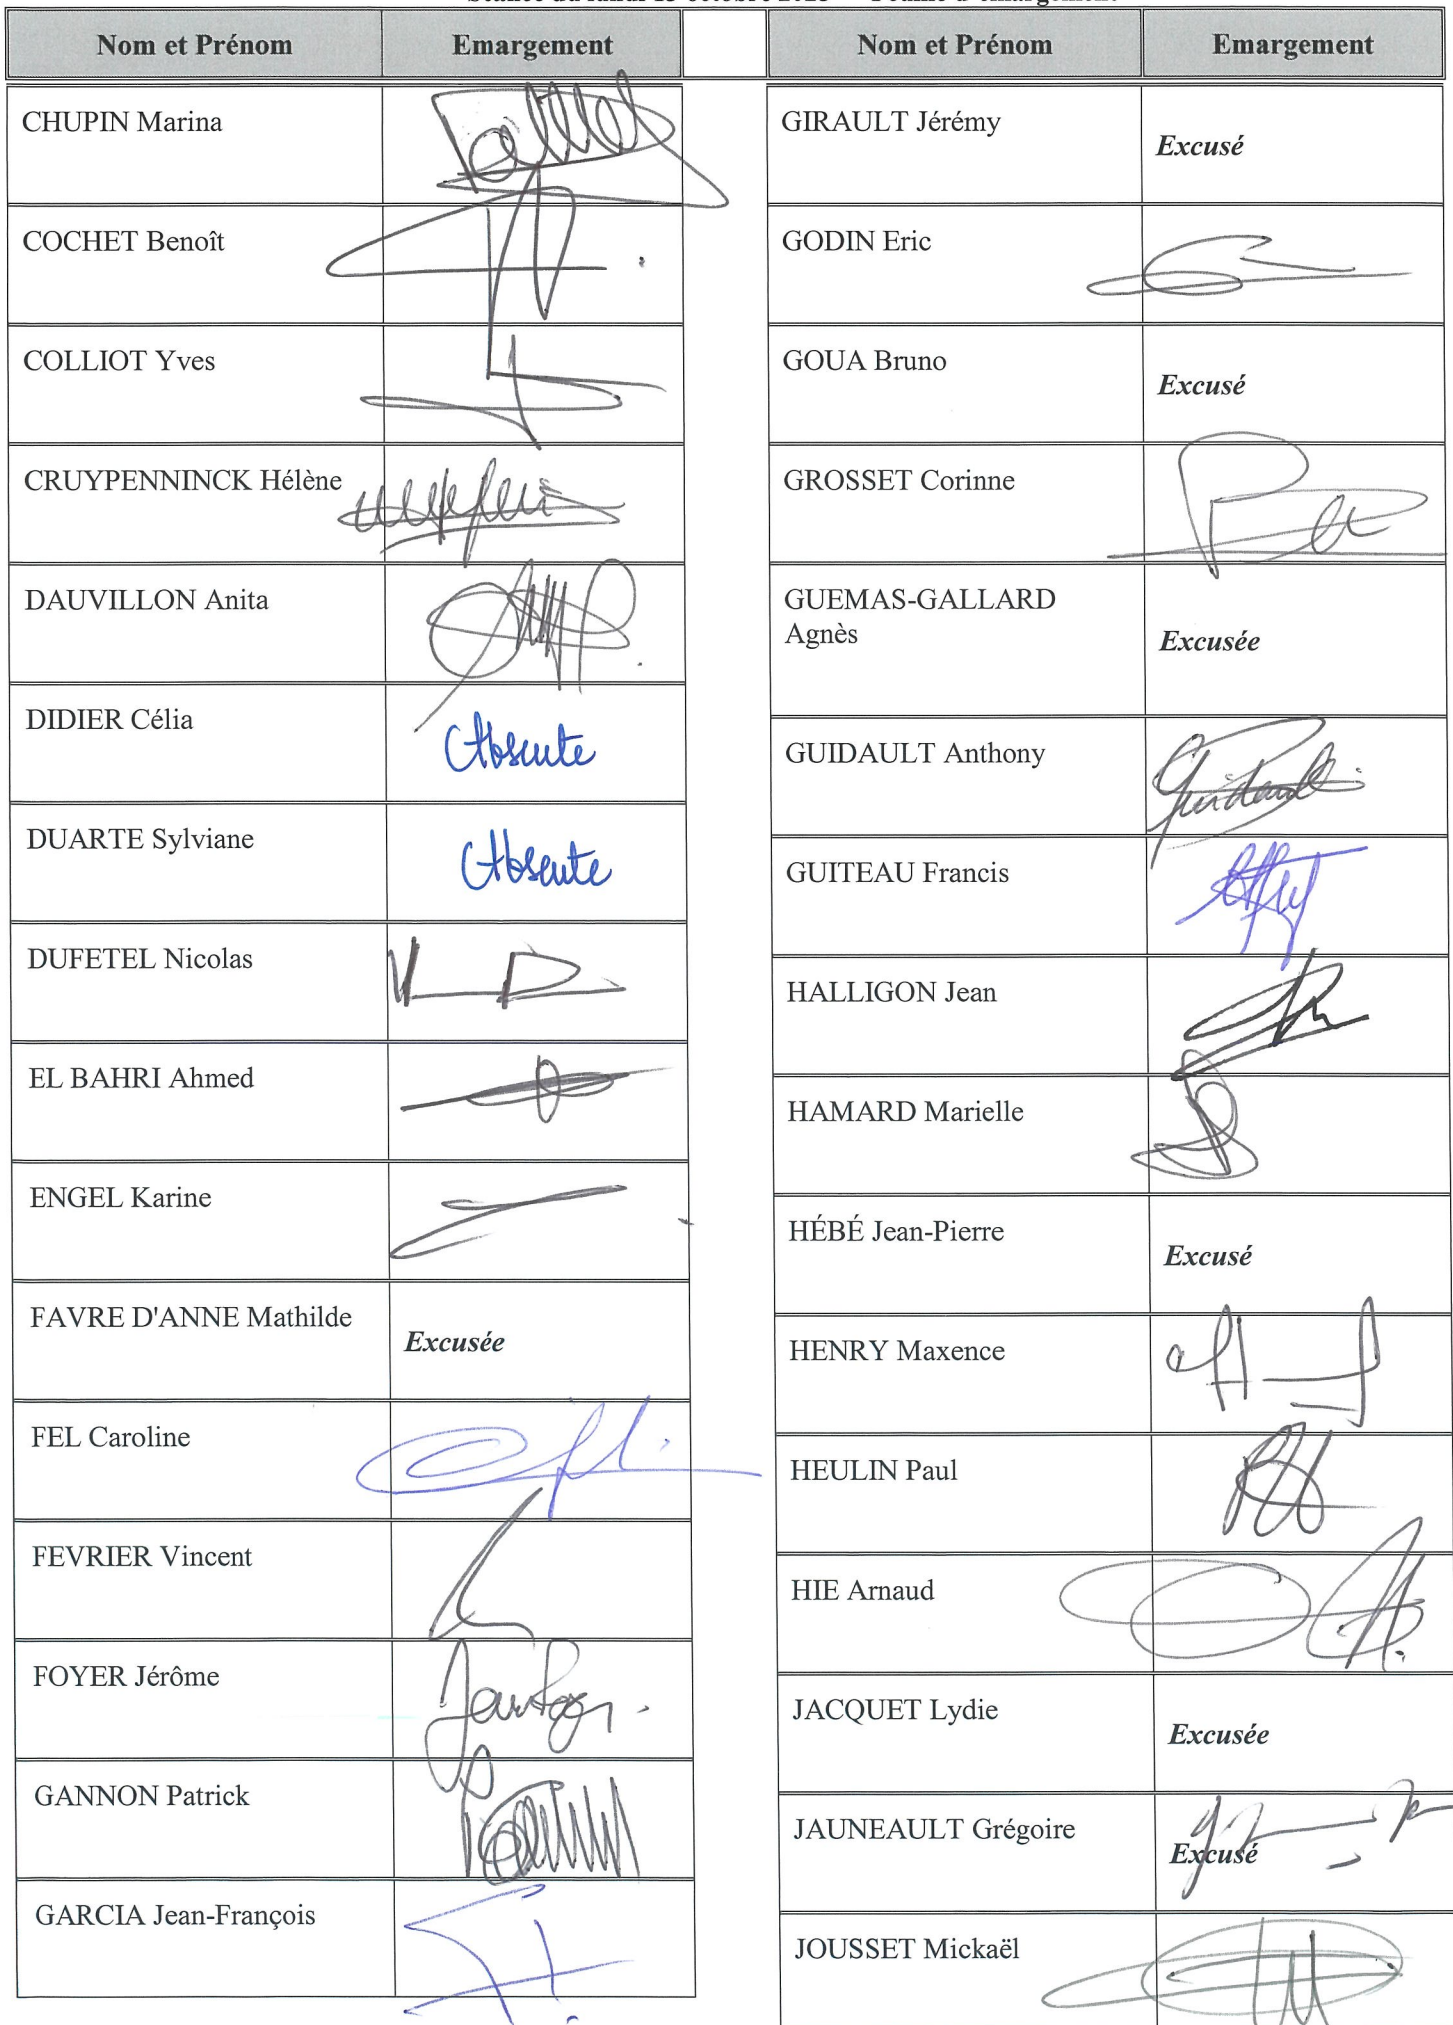 Nom et Prénom Emargement
CHUPIN Marina
COCHET Benoît
COLLIOT Yves
CRUYPENNINCK Hélène
DAUVILLON Anita
DIDIER Célia Absente
DUARTE Sylviane Absente
DUFETEL Nicolas
EL BAHRI Ahmed
ENGEL Karine
FAVRE D'ANNE Mathilde Excusée
FEL Caroline
FEVRIER Vincent
FOYER Jérôme
GANNON Patrick
GARCIA Jean-François
Nom et Prénom Emargement
GIRAULT Jérémy Excusé
GODIN Eric
GOUA Bruno Excusé
GROSSET Corinne
GUEMAS-GALLARD
Agnès Excusée
GUIDAULT Anthony
GUITEAU Francis
HALLIGON Jean
HAMARD Marielle
HÉBÉ Jean-Pierre Excusé
HENRY Maxence
HEULIN Paul
HIE Arnaud
JACQUET Lydie Excusée
JAUNEAULT Grégoire Excusé
JOUSSET Mickaël